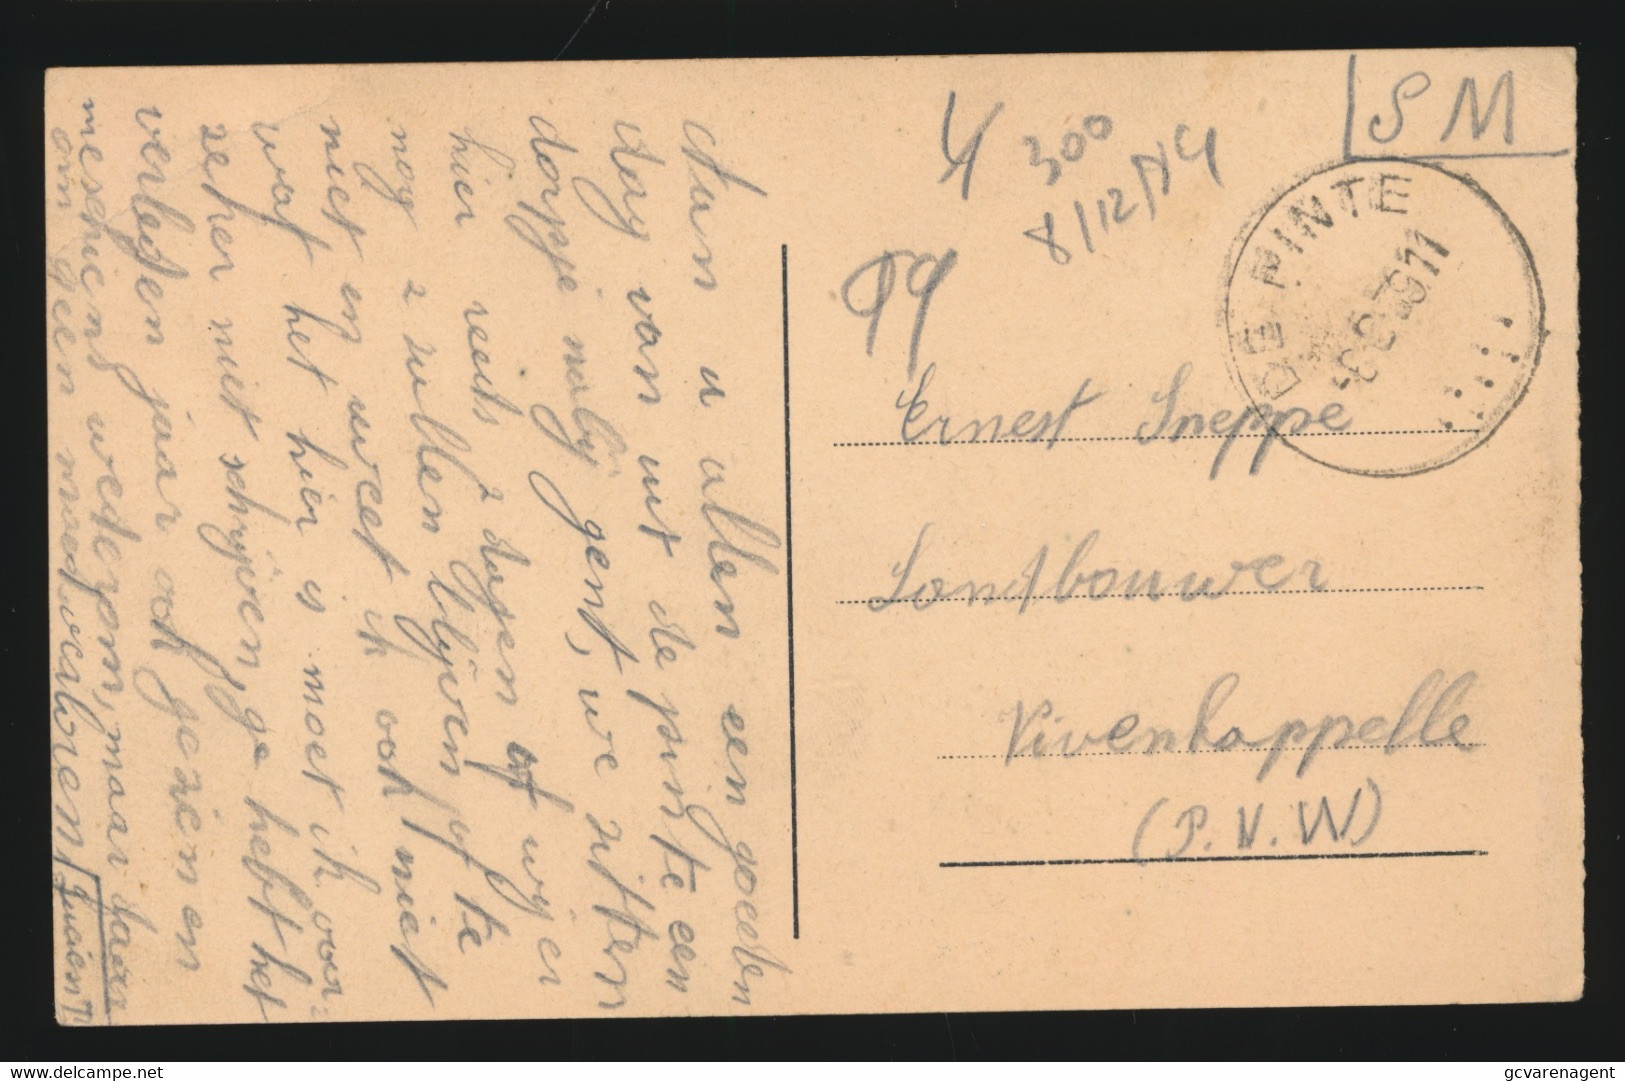 Aan u allen een goeden
dag van uit de pinte een
dorpje nabij gent, we zitten
hier reeds 2 dagen of wij er
nog 2 zullen blijven of te
niet en weet ik ook niet
wat het hier is moet ik voor=
zeker niet schrijven, ge hebt het
verleden jaar ook gezien en
meschient wederom, maar daar
om geen moed verloren
Lucien
4
300
8/12/74
99
S M
DE PINTE
Ernest Sneppe
Landbouwer
Vivenkappelle
(P.V.W)
gcvarenagent
https://www.delcampe.net